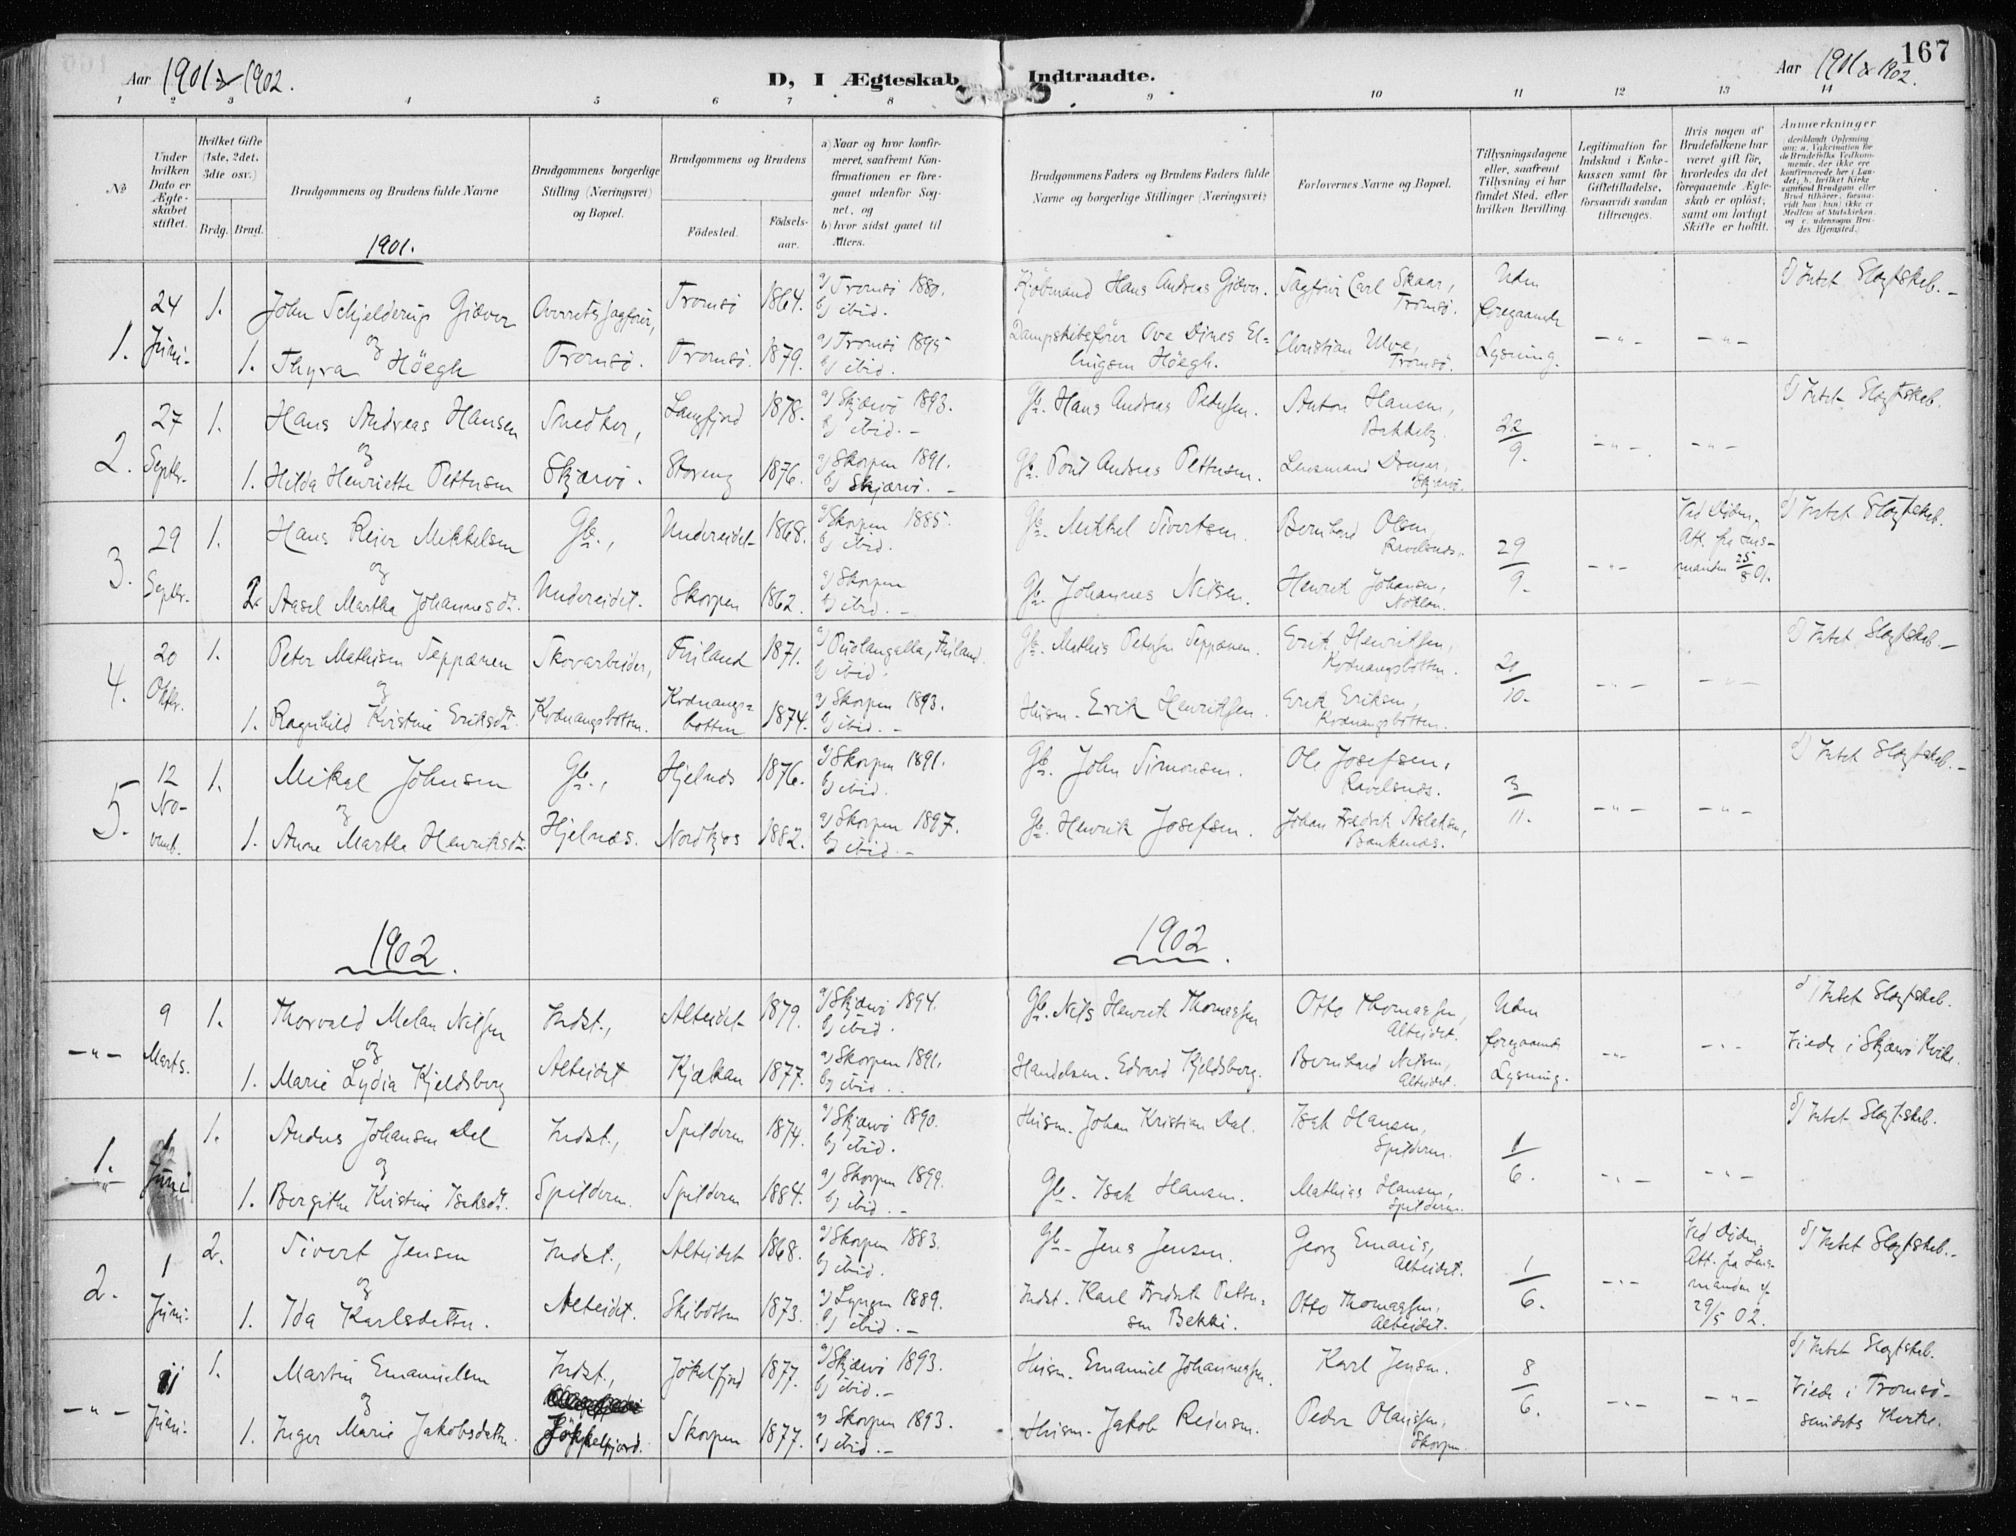 167
Aar 1901 & 1902.
D, I Ægteskab Indtraadte.
Aar 1901 & 1902.
1 2 3 4 5 6 7 8 9 10 11 12 13 14
No
Under hvilken Dato er Ægteskabet stiftet.
Hvilket Gifte (1ste, 2det, 3die osv.)
Brdg. Brud.
Brudgommens og Brudens fulde Navne
Brudgommens borgerlige Stilling (Næringsvei) og Bopæl.
Brudgommens og Brudens
Födested.
Födselsaar.
a) Naar og hvor konfirmeret, saafremt Konfirmationen er foregaaet udenfor Sognet, og
b) hvor sidst gaaet til Alters.
Brudgommens Faders og Brudens Faders fulde Navne og borgerlige Stillinger (Næringsvei)
Forlovernes Navne og Bopæl.
Tillysningsdagene eller, saafremt Tillysning ei har fundet Sted, efter hvilken Bevilling.
Legitimation for Indskud i Enkekassen samt for Giftetilladelse, forsaavidt saadan tiltrænges.
Hvis nogen af Brudefolkene har været gift för, hvorledes da det foregaaende Ægteskab er oplöst, samt om lovligt Skifte er holdt.
Anmærkninger
1901.
1. 24 Juni. 1. John Schjelderup Giæver Overretssagförer, Tromsö 1864. a) Tromsö 1880. b) ibid. Kjöbmand Hans Andreas Giæver. Sagförer Carl Skaar, Tromsö. Uden foregaaende Lysning. d) Intet Slægtskab.
og
1. Thyra Höegh Tromsö. Tromsö. 1879. a) Tromsö 1895 b) ibid. Dampskibsförer Ove Dines Ellingsen Höegh. Christian Ulve, Tromsö.
2. 27 Septbr. 1. Hans Andreas Hansen Snedker, Langfjord 1878. a) Skjærvö 1893. b) ibid. Gb. Hans Andreas Petersen. Anton Hansen, 22/9. d) Intet Slægtskab.
og
1. Hilda Henriette Pettersen Skjærvö. Storeng 1876. a) Skorpen 1891. b) Skjærvö. Gb. Poul Andreas Pettersen. Lensmand Dreyer, Skjærvö.
3. 29 Septbr. 1. Hans Reier Mikkelsen Gb., Undereidet 1868. a) Skorpen 1885. b) ibid. Gb. Mikkel Sivertsen. Bernhard Olsen, Ravelsnæs. 29/9. Ved Döden, Att. fra Lensmanden 25/8 01. d) Intet Slægtskab.
og
2. Aasel Martha Johannesdr. Undereidet. Skorpen 1862. a) Skorpen b) ibid. Gb. Johannes Nilsen. Henrik Johansen,
4. 20 Oktbr. 1. Peter Mathisen Seppænen Skovarbeider, Finland 1871. a) Puolangalla, Finland. b) ibid. Gb. Mathis Petersen Seppænen. Erik Henriksen, Kvænangsbotten. /10. d) Intet Slægtskab.
og
1. Ragnhild Kristine Eriksdr. Kvænangsbotten. Kvænangsbotten 1874. a) Skorpen 1893. b) ibid. Husm. Erik Henriksen. Erik Eriksen, Kvænangsbotten.
5. 12 Novemb. 1. Mikal Johnsen Gb., Hjelnæs 1876. a) Skorpen 1891. b) ibid. Gb. John Simonsen. Ole Josefsen, Ravelsnæs. 3/11. d) Intet Slægtskab.
og
1. Anne Marthe Henriksdr. Hjelnæs. Nordkjos 1882. a) Skorpen 1897. b) ibid. Gb. Henrik Josefsen. Johan Fredrik Aslaksen,
1902.
1902.
-"- 9 Marts. 1. Thorvald Melan Nilsen Indst., Alteidet 1879. a) Skjærvö 1894. b) ibid. Gb. Nils Henrik Thomassen Otto Thomassen, Alteidet. Uden foregaaende Lysning. d) Intet Slægtskab. Viede i Skjærvö Kirke.
og
1. Marie Lydia Kjeldsberg Alteidet Kjækan 1877. a) Skorpen 1891. b) ibid. Handelsm. Edvard Kjeldsberg. Bernhard Nilsen, Alteidet.
1. 1 Juni 1. Anders Johansen Dal Indst., Spilderen 1874. a) Skjærvö 1890. b) ibid. Husm. Johan Kristian Dal. Isak Hansen, Spilderen. 1/6. d) Intet Slægtskab.
og
1. Bergithe Kirstine Isaksdr. Spilderen. Spilderen 1884. a) Skorpen 1899. b) ibid. Gb. Isak Hansen. Mathias Hansen, Spilderen.
2. 1 Juni. 2. Sivert Jensen Indst., Alteidet 1868. a) Skorpen 1883. b) ibid. Gb. Jens Jensen. Georg Emaus, Alteidet. 1/6. Ved Döden. Att. fra Lensmanden af 29/5 02. d) Intet Slægtskab.
og
1. Ida Karlsdatter. Alteidet. Skibotten 1873. a) Lyngen 1889. b) ibid. Indst. Karl Fredrik Pettersen Bekki. Otto Thomassen, Alteidet.
-"- 11 Juni. 1. Martin Emanuelsen Indst., Jökelfjord 1877. a) Skjærvö 1893. b) ibid. Husm. Emanuel Johannessen. Karl Jensen. 8/6. d) Intet Slægtskab. Viede i Tromsösundets Kirke.
og
1. Inger Marie Jakobsdatter. Jökkelfjord. Skorpen 1877. a) Skorpen 1893. b) ibid. Husm. Jakob Reiersen. Peder Olaussen, Skorpen